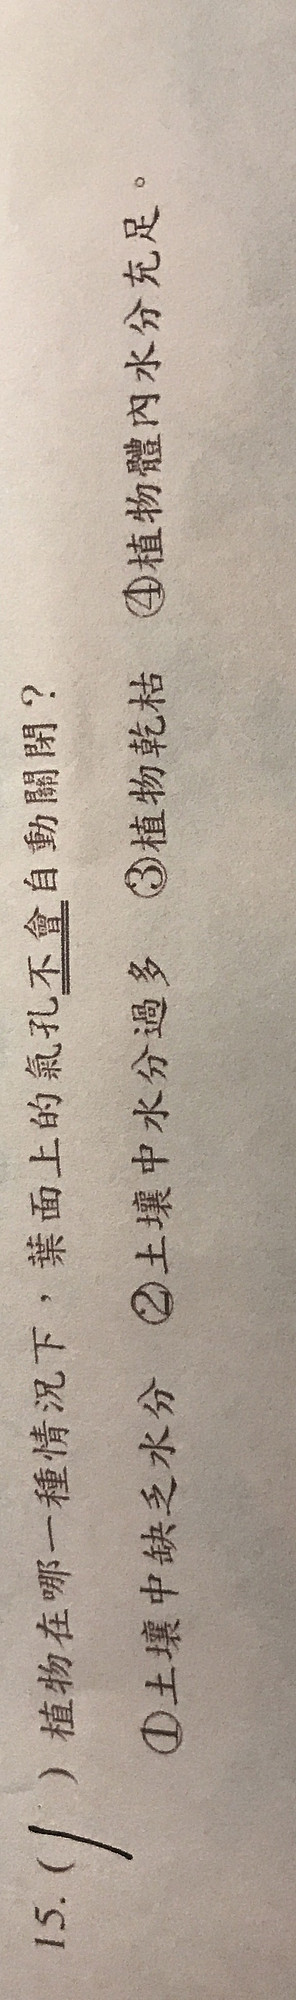 15.(1)植物在哪一種情況下，葉面上的氣孔不會自動關閉？
①土壤中缺乏水分 ②土壤中水分過多 ③植物乾枯 ④植物體內水分充足。